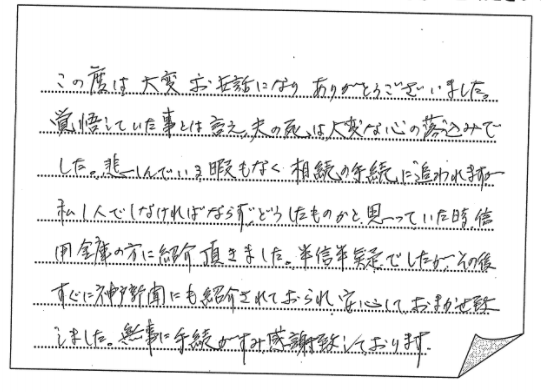 この度は大変お世話になりありがとうございました。
覚悟していた事とは言え、夫の死は大変な心の落込みで
した。悲しんでいる暇もなく相続の手続に追われますが
私1人でしなければならず、どうしたものかと思っていた時、信
用金庫の方に紹介頂きました。半信半疑でしたが、その後
すぐに神戸新聞にも紹介されておられ、安心しておまかせ致
しました。無事に手続がすみ感謝致しております。